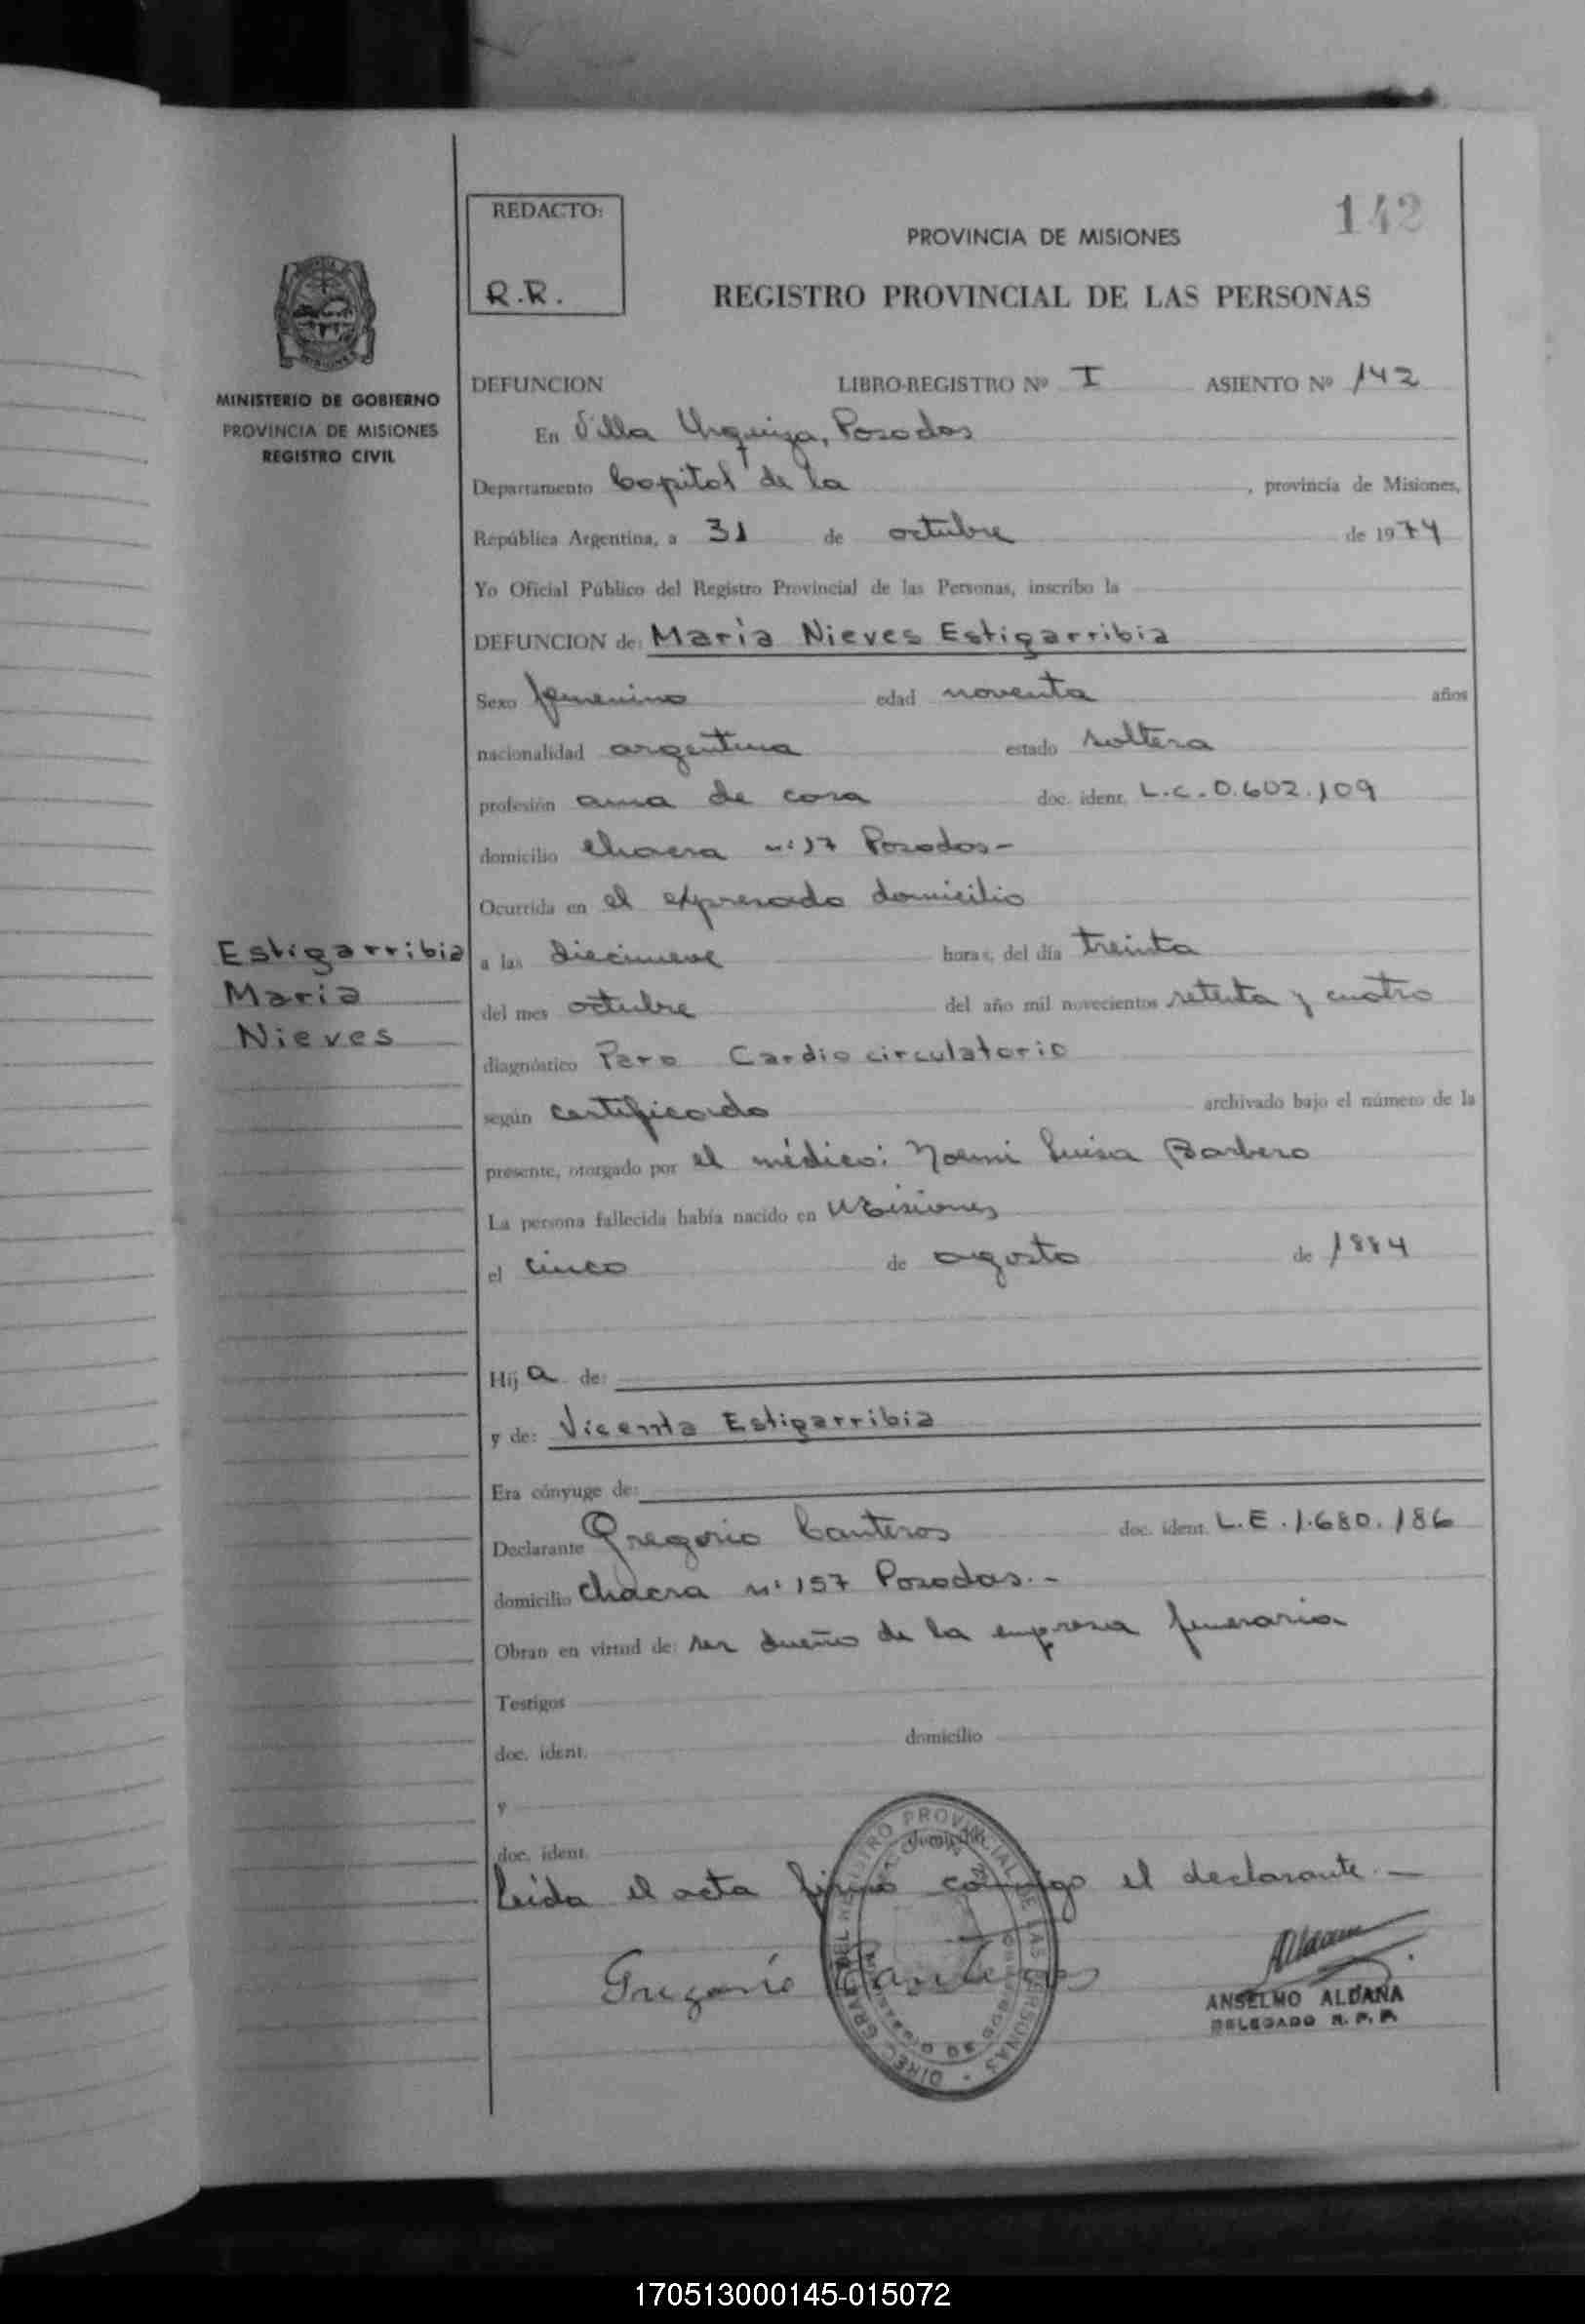 142
REDACTO:
R.R.
PROVINCIA DE MISIONES
REGISTRO PROVINCIAL DE LAS PERSONAS
MINISTERIO DE GOBIERNO
PROVINCIA DE MISIONES
REGISTRO CIVIL
DEFUNCION LIBRO-REGISTRO Nº I ASIENTO Nº 142
En Villa Urquiza, Posadas
Departamento Capital de la , provincia de Misiones,
República Argentina, a 31 de octubre de 1974
Yo Oficial Público del Registro Provincial de las Personas, inscribo la
DEFUNCION de: María Nieves Estigarribia
Sexo femenino edad noventa años
nacionalidad argentina estado soltera
profesión ama de casa doc. ident. L.C. 0.602.109
domicilio Chacra nº 17 Posadas -
Ocurrida en el expresado domicilio
a las diecinueve horas, del día treinta
del mes octubre del año mil novecientos setenta y cuatro
diagnóstico Paro Cardio circulatorio
según certificado archivado bajo el número de la
presente, otorgado por el médico: Noemi Luisa Barbero
La persona fallecida había nacido en Misiones
el cinco de agosto de 1884
Estigarribia
Maria
Nieves
Hij a de:
y de: Vicenta Estigarribia
Era cónyuge de:
Declarante Gregorio Canteros doc. ident. L.E. 1.680.186
domicilio Chacra nº 157 Posadas.-
Obran en virtud de: ser dueño de la empresa funeraria
Testigos
doc. ident. domicilio
y
doc. ident. domicilio
Leída el acta firma conmigo el declarante.-
Gregorio Canteros
DIREC. GRAL. DEL REGISTRO PROVINCIAL DE LAS PERSONAS
ANSELMO ALDANA
DELEGADO R. P. P.
170513000145-015072